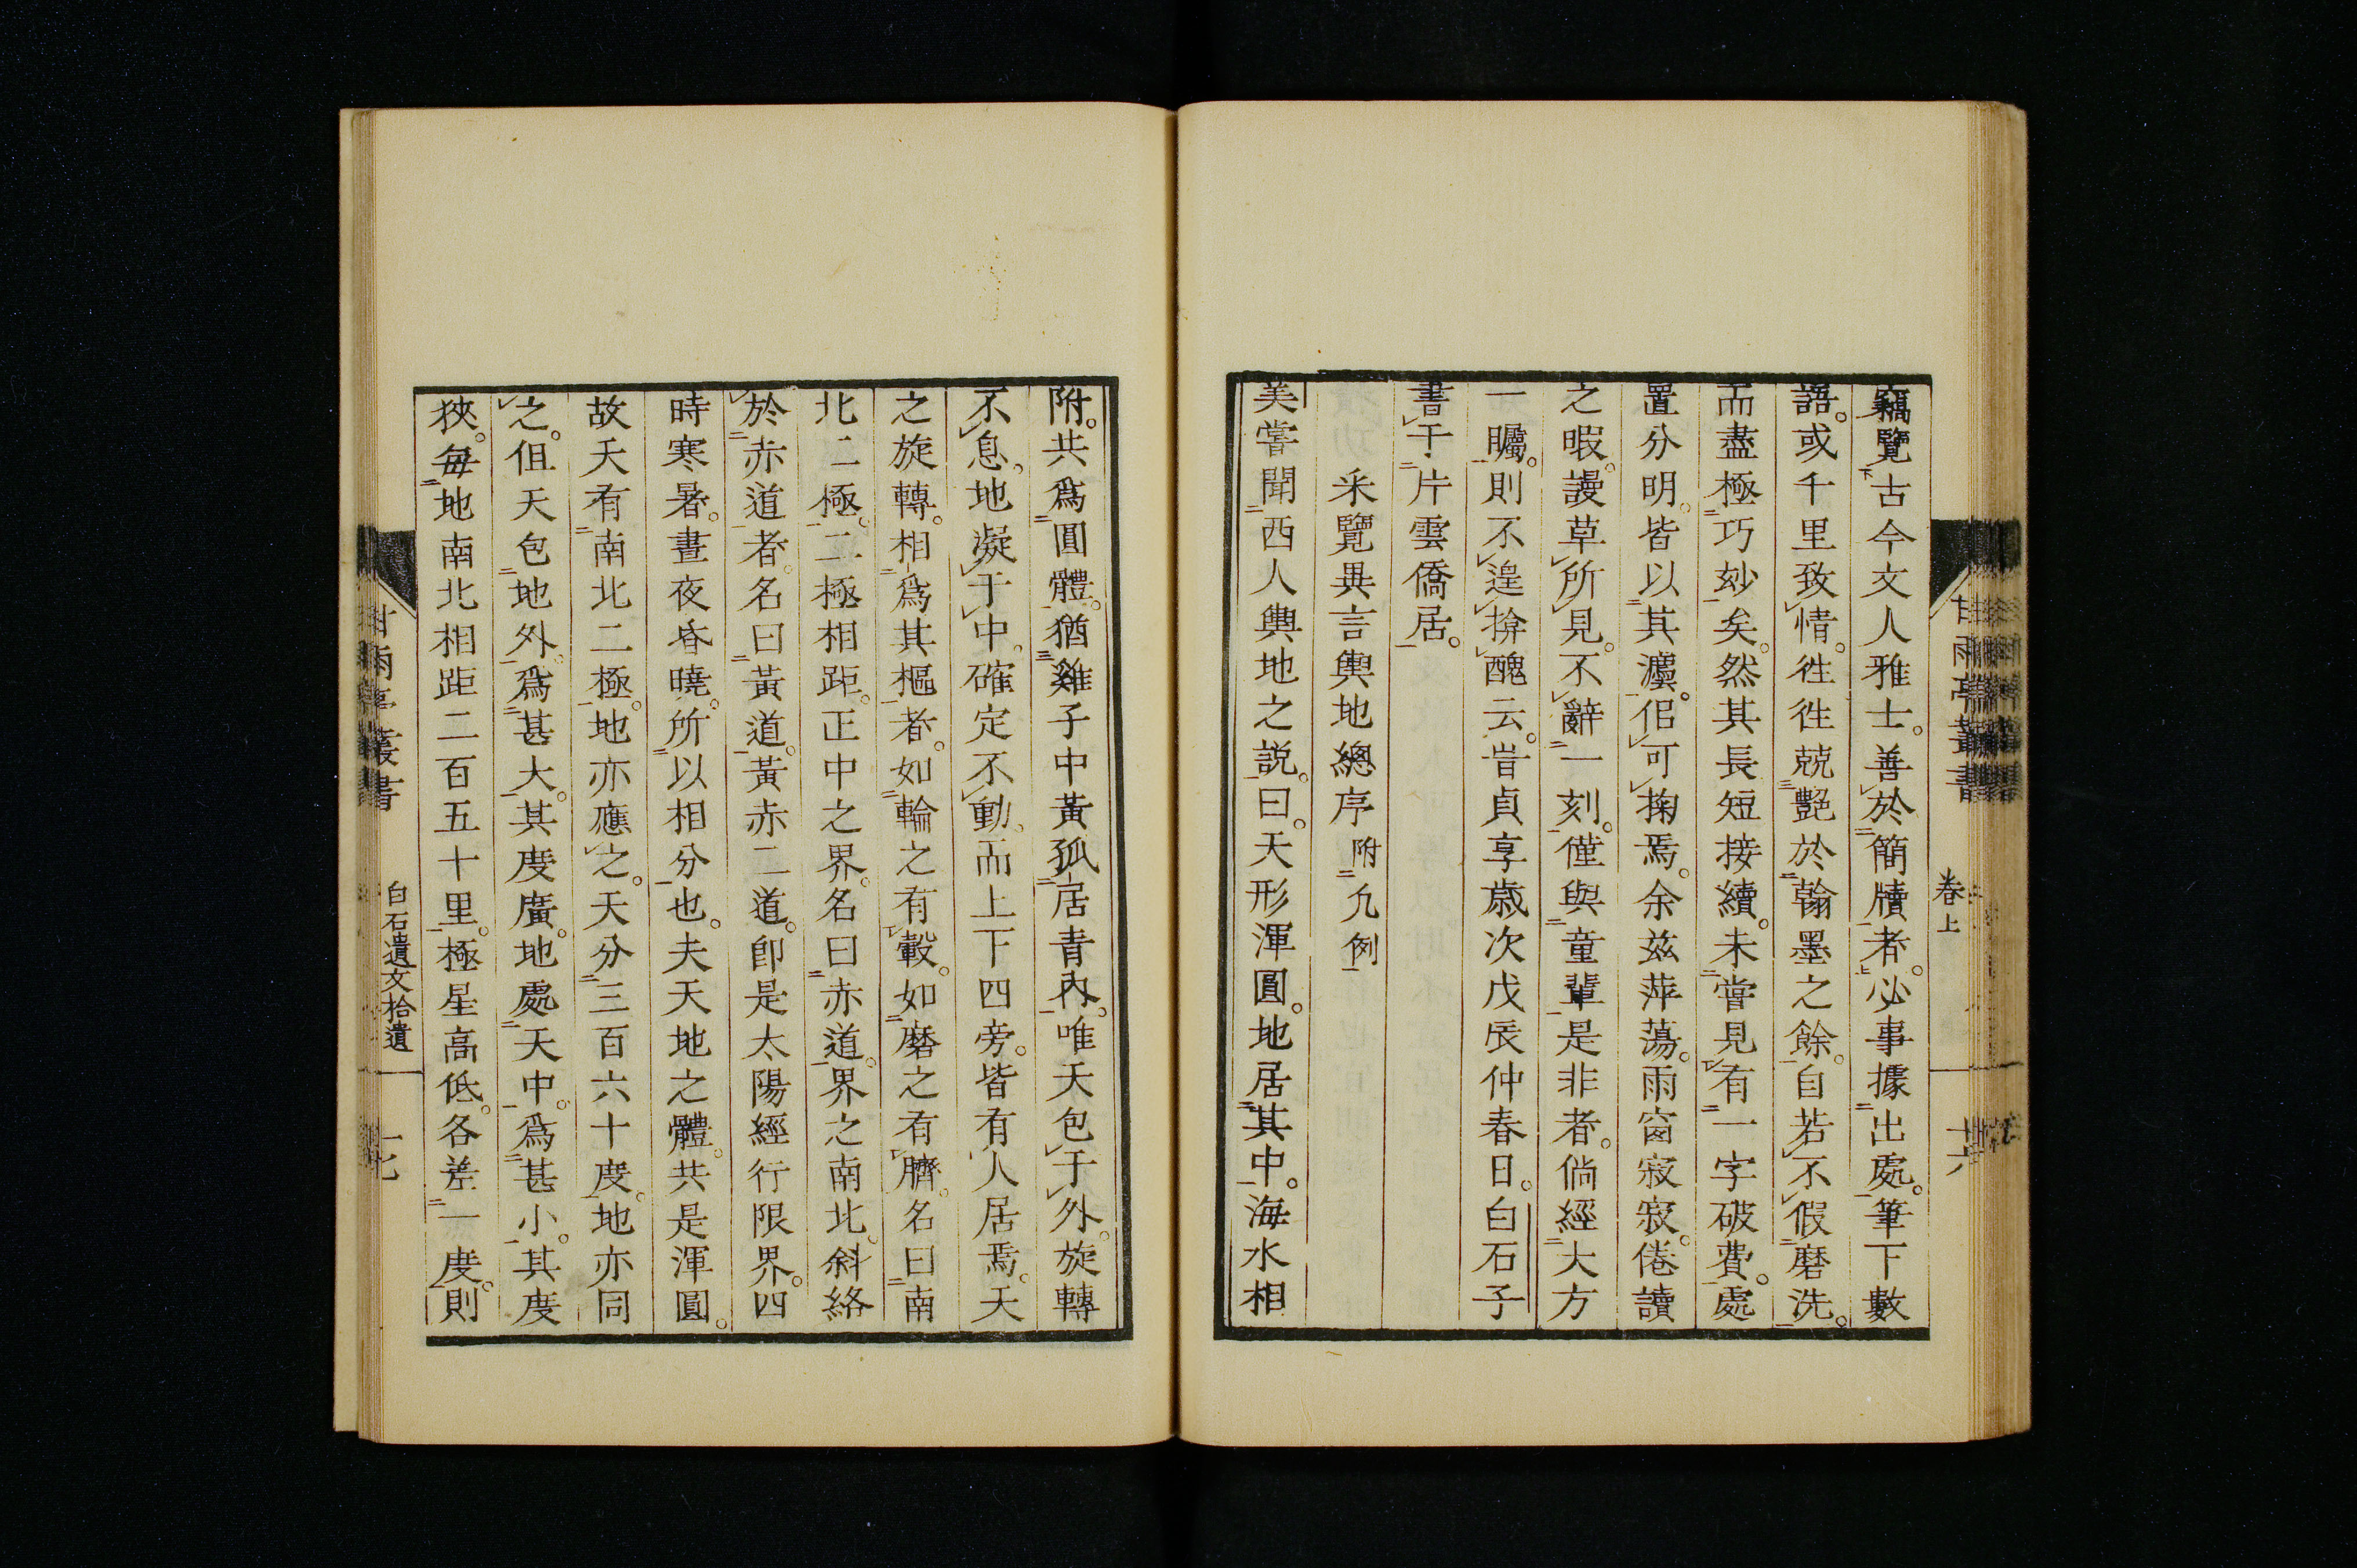 竊覽古今文人雅士。善於簡牘者。必事據出處。筆下數
語。或千里致情。往往兢艷於翰墨之餘。自若不假磨洗。
而盡極巧玅矣。然其長短接續。未嘗見有一字破費。處
置分明。皆以其灋。佀可掬焉。余茲萍蕩。雨窗寂寂。倦讀
之暇。謾草所見。不辭一刻。僅與童輩是非者。倘經大方
一矚。則不遑揜醜云。旹貞享歲次戊辰仲春日。白石子
書于片雲僑居。
采覽異言輿地總序 附凡例
美嘗聞西人輿地之說。曰。天形渾圓。地居其中。海水相
卷上
甘雨亭叢書
十六
附。共爲圓體。猶雞子中黃孤居青內。唯天包于外。旋轉
不息。地凝于中。確定不動。而上下四旁。皆有人居焉。天
之旋轉。相爲其樞者。如輪之有轂。如磨之有臍。名曰南
北二極。二極相距。正中之界。名曰赤道。界之南北。斜絡
於赤道者。名曰黃道。黃赤二道。卽是太陽經行限界。四
時寒暑。晝夜昏曉。所以相分也。夫天地之體。共是渾圓。
故天有南北二極。地亦應之。天分三百六十度。地亦同
之。伹天包地外。爲甚大。其度廣。地處天中。爲甚小。其度
狹。每地南北相距二百五十里。極星高低。各差一度。則
甘雨亭叢書
白石遺文拾遺
十七